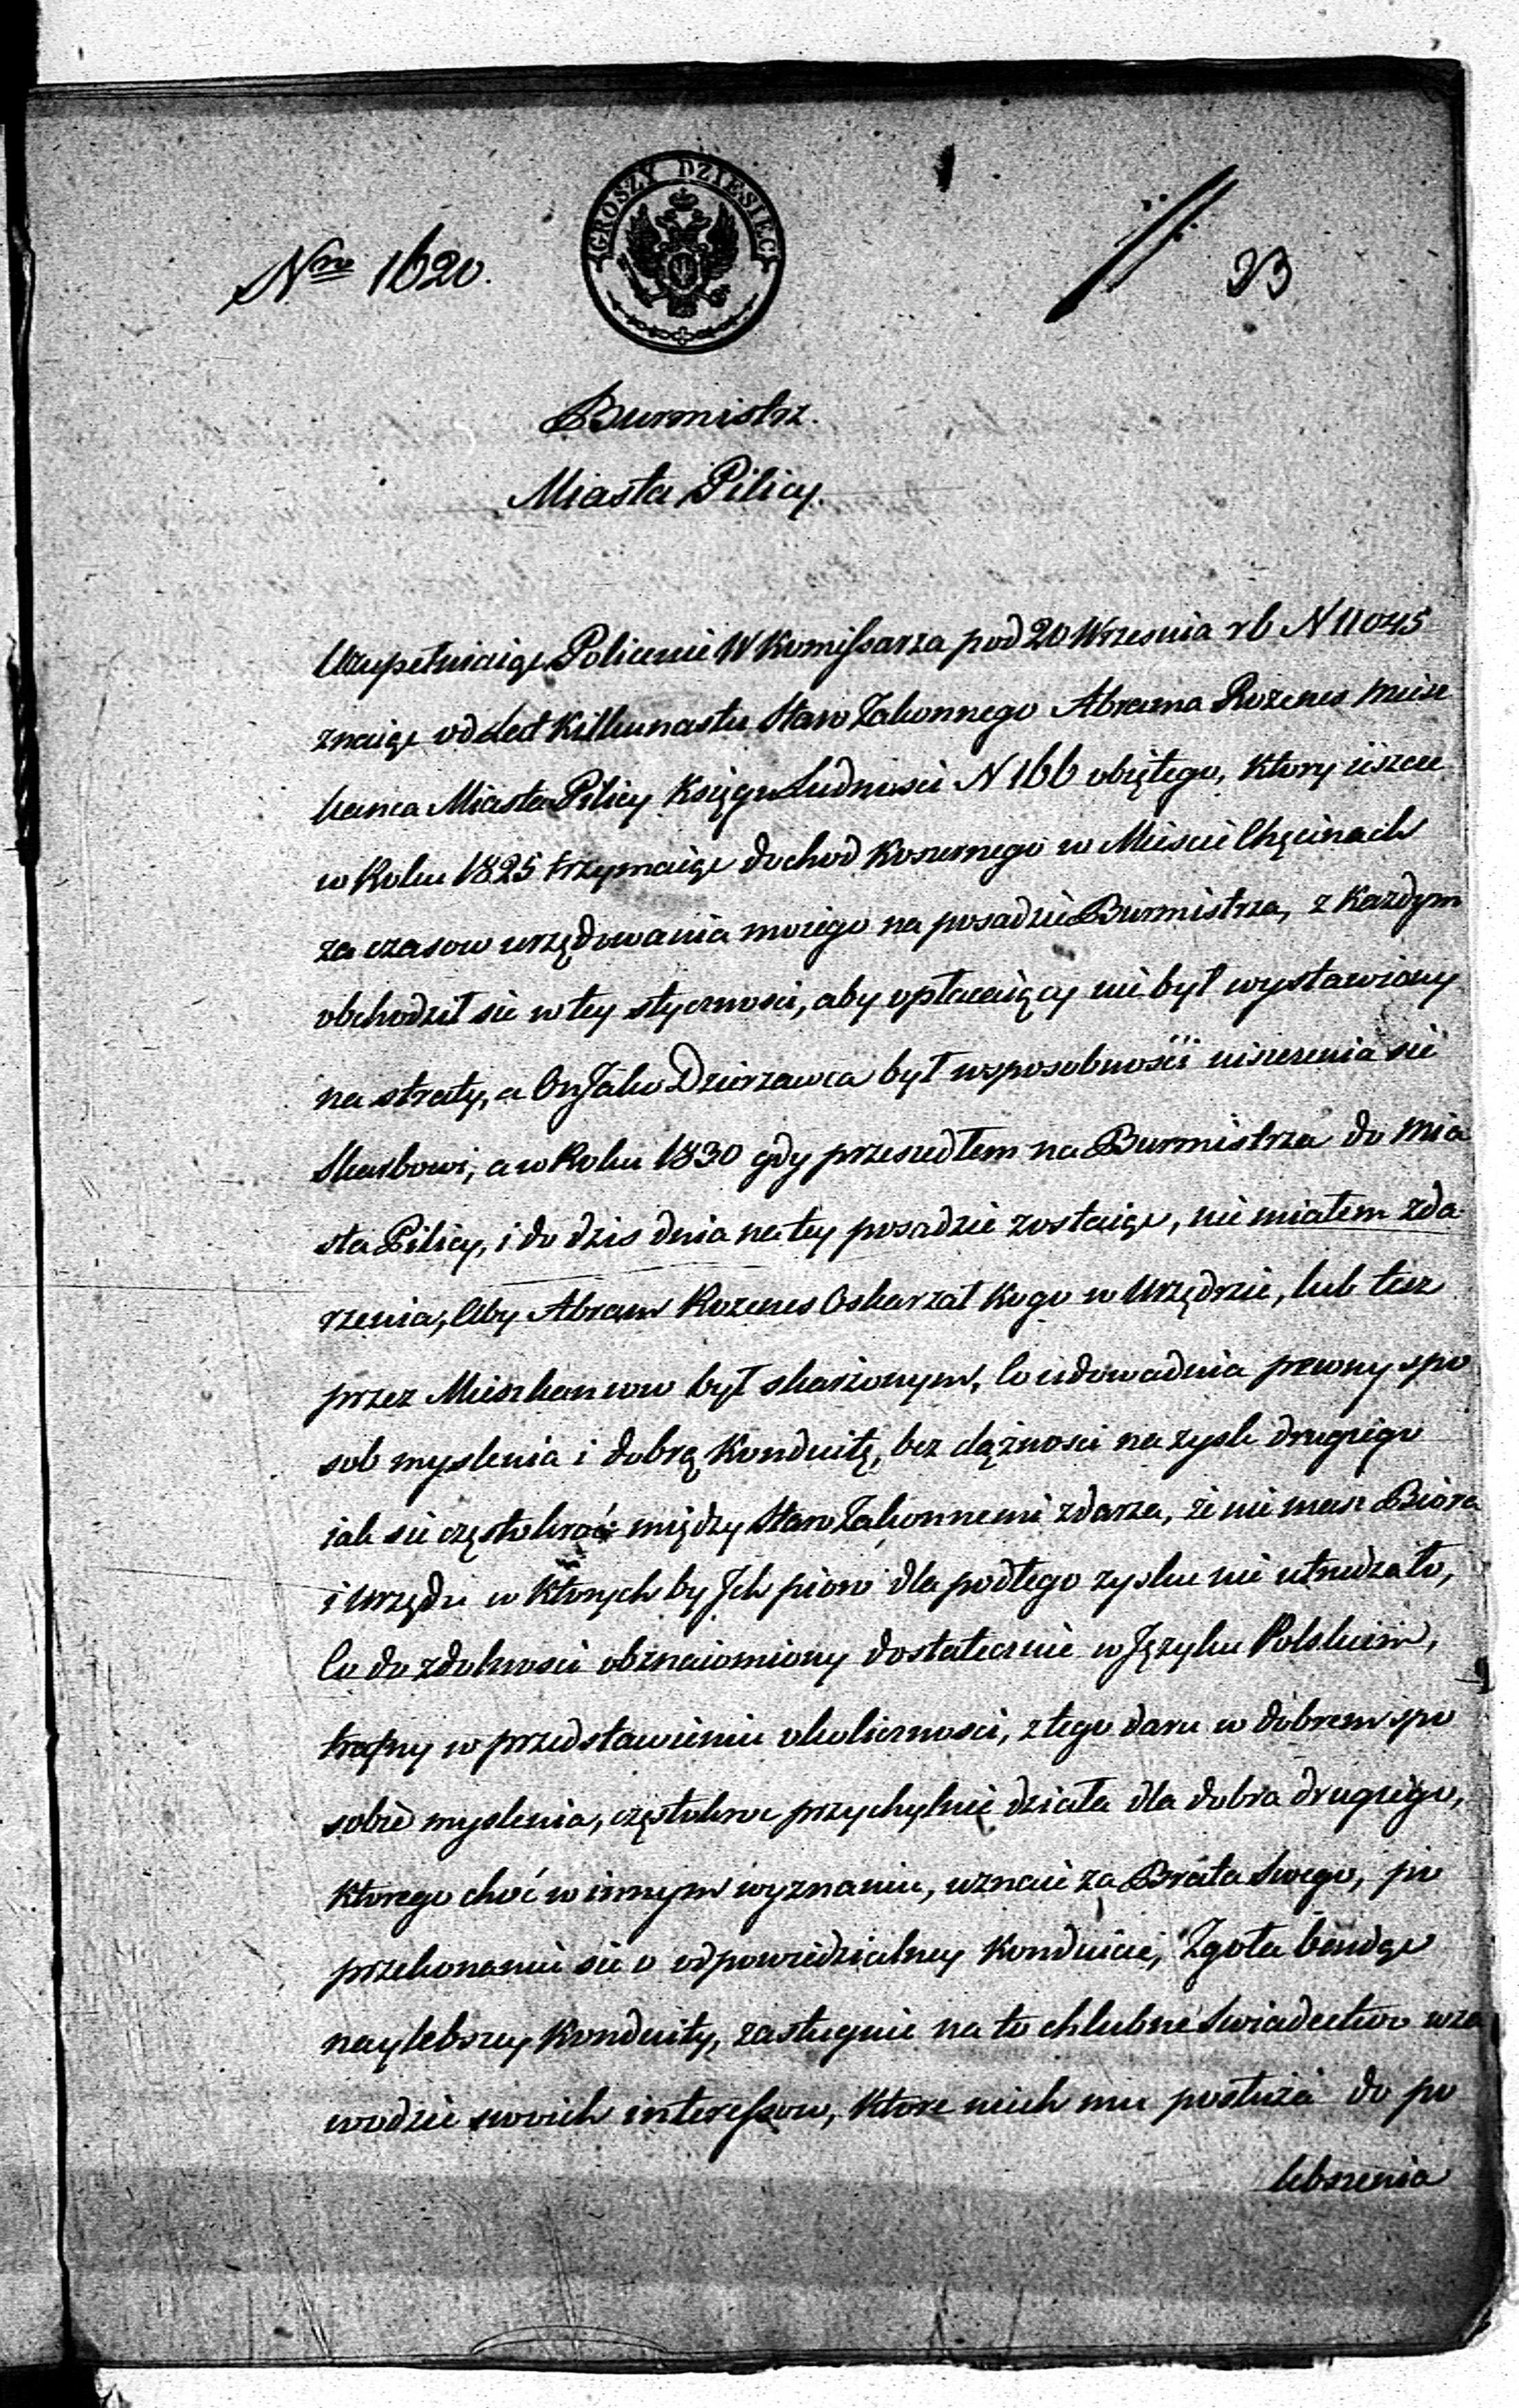 GROSZY DZIESIĘĆ
Nro 1620.
23
Burmistrz.
Miasta Pilicy.
Uzupełniaiąc Polecenie W Komissarza pod 20 Wrzesnia rb N 11045
znaiąc od lat Kilkunastu Staro Zakonnego Abrama Rozenes Miesz
kanca Miasta Pilicy Księgą Ludnosci N 166 obiętego, ktory ieszcze
w Roku 1825 trzymaiąc dochod Koszernego w Miescie Chęcinach
za czasow urzędowania moiego na posadzie Burmistrza, z Każdym
obchodził sie w tey stycznosci, aby opłacaiący nie był wystawiony
na straty, a On Jako Dzierzawca był w sposobności uiszczenia sie
Skarbowi, a w Roku 1830 gdy przeszedłem na Burmistrza do Mia
sta Pilicy, i do dzis dnia na tey posadzie zostaiąc, nie miałem zda
rzenia, Aby Abram Rozenes Oskarzał Kogo w Urzędzie, lub tesz
przez Mieszkancow był skarżonym, Co udowadnia prawny spo
sob myslenia i dobrą Konduitę, bez dążnosci na zysk drugiego
iak sie częstokroć między Staro Zakonnemi zdarza, że nie masz Bióra
i Urzędu w Ktorych by Jch pioro dla podłego zysku nie utrudzało,
Co do zdolnosci obznaiomiony dostatecznie w Języku Polskim,
trafny w przedstawieniu okolicznosci, z tego daru w dobrem spo
sobie myslenia, częstokroc przychylnie działa dla dobra drugiego,
Ktorego choć w innym wyznaniu, uznaie za Brata swego, po
przekonaniu sie o odpowiedzialney Konduicie, Zgoła bendąc
naylebszey Konduity, zasługuie na to chlubne Swiadectwo wza
wodzie swoich interessow, Które niech mu posłuża do po
lebszenia